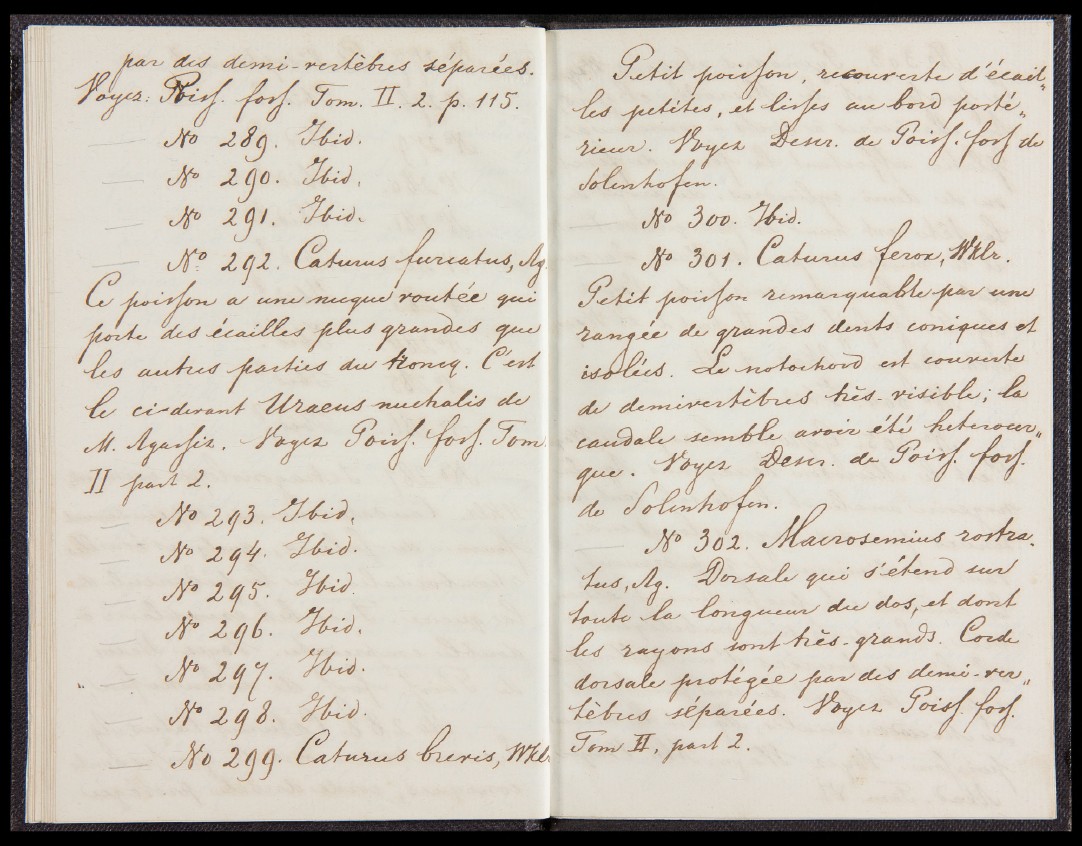 par des demi-vertèbres séparées.
Voyez: Poiss. foss. Tom. II. 2. p. 115.
— No 289. Ibid.
— No 290. Ibid.
— No 291. Ibid.
— No 292. Caturus furcatus, Ag.
Ce poisson a une nuque voutée qui
porte des écailles plus grandes que
les autres parties du troncq. C'est
le ci-devant Uraeus nuchalis de
M. Agassiz. Voyez Poiss. foss. Tom.
II part 2.
— No 293. Ibid.
— No 294. Ibid.
— No 295. Ibid.
— No 296. Ibid.
— No 297. Ibid.
— No 298. Ibid.
— No 299. Caturus brevis, Wklr
Petit poisson, recouverte d'écail„
les petites, et lisses au bord posté„
rieur. Voyez Descr. de Poiss. foss de
Solenhofen.
— No 300. Ibid.
— No 301. Caturus ferox, Wklr.
Petit poisson remarquable par une
rangée de grandes dents coniques et
isolées. Le notochord est couverte
de demivertèbres très-visible; la
caudale semble avoir été heterocer„
que. Voyez Descr. de Poiss. foss.
de Solenhofen.
— No 302. Macrosemius rostra„
tus, Ag. Dorsale qui s'étend sur
toute la longueur du dos, et dont
les rayons sont très-grands. Corde
dorsale protégée par des demi-ver„
tèbres séparées. Voyez Poiss. foss.
Tom II, part 2.